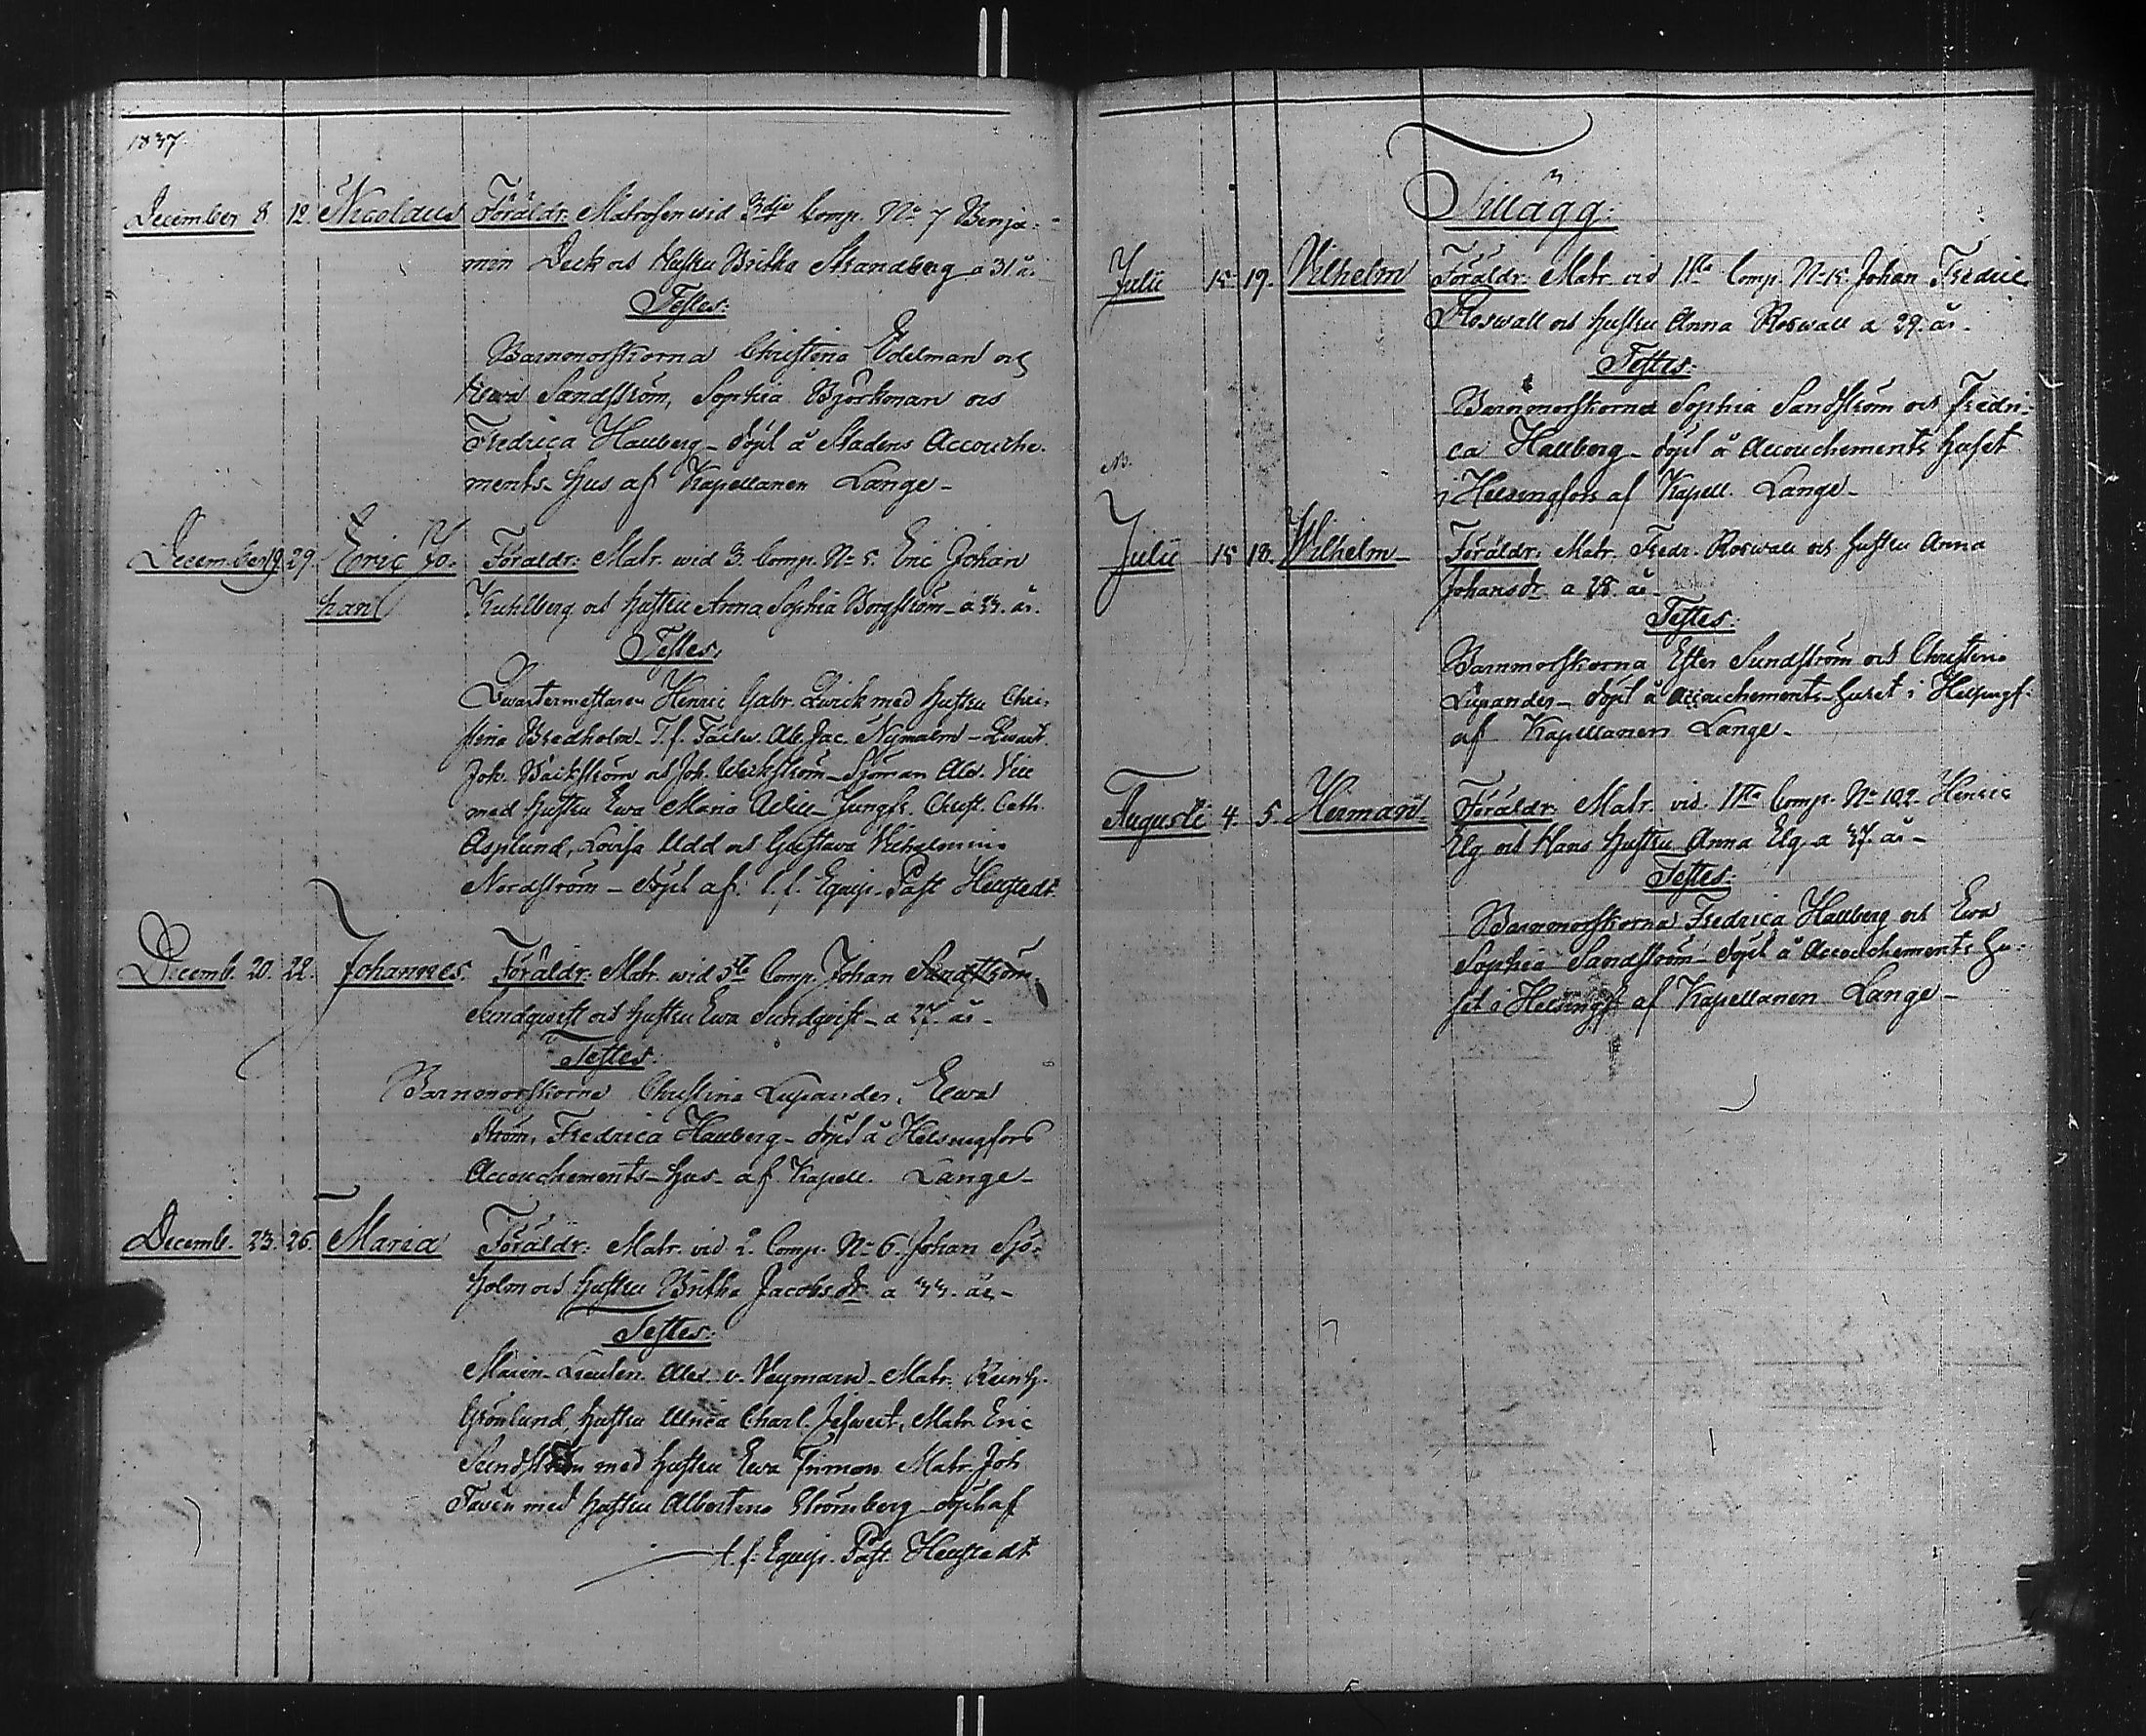 1837.
December 8. 12. Nicolaus Föräldr: Matrosen wid 3dje Comp. No 7 Benja-
min Deck och Hustru Britha Strandberg a 31 år
Testes:
Barnmorskorna Christina Edelman och
Ewa Sandström, Sophia Björkman och
Fredrica Hallberg - döpt å Stadens Accouche-
ments-hus af Kapellanen Lange -
December 19. 29. Eric Jo- Föräldr: Matr. wid 3. Comp. No 5. Eric Johan
han Kuhlberg och hustru Anna Sophia Borgström - a 33. år.
Testes:
Qwartermestaren Henric Gabr. Qwick med hustru Chri-
stina Bredholm. T.f. Alex. Jac. Nyman - Qwart.
Joh. Bäckström och Joh. Weckström - Sjöman Alex.
med hustru Ewa Maria - Jungfr. Christ. Cath.
Asplund, Lovisa Udd och Gustava Wilhelmina
Nordström - döpt af t. f. Equip. Past. Hellstedt.
Decemb. 20. 22. Johannes. Föräldr: Matr. wid 5te Comp. Johan Sandström
Sundqwist och hustru Ewa Sundqvist - a 27. år -
Testes:
Barnmorskorna Christina Lupander, Ewa
Ström, Fredrica Hallberg - döpt å Helsingfors
Accouchements-hus af Kapell. Lange -
Decemb. 23. 26. Maria Föräldr: Matr. vid 2. Comp. No 6. Johan Sjö-
holm och hustru Britha Jacobsdr a 33. år -
Testes:
Marin-Lieuten. Alex. v. Weymarn - Matr. Reinh.
Grönlund, hustru Ulrica Charl. Matr. Eric
Sundström med hustru Ewa Friman Matr. Joh.
med hustru Albertina Strömberg - döpt af
t. f. Equip. Past. Hellstedt
Tillägg:
Julii 15 19. Vilhelm Föräldr: Matr. vid 1sta Comp. No 15. Johan Fredric
Roswall och hustru Anna Roswall a 29. år -
Testes:
Barnmorskorna Sophia Sandström och Fredri-
ca Hallberg - döpt å Accouchements huset
NB.
i Helsingfors af Kapell. Lange -
Julii 15 18. Wilhelm Föräldr: Matr. Fredr. Roswall och hustru Anna
Johansdr a 28. år -
Testes:
Barnmorskorna Ester Sundström och Christina
Lupander - döpt å Accouchements-huset i Helsingf:
af Kapellanen Lange -
Augusti 4. 5. Herman. Föräldr: Matr. vid 1sta Comp. No 102. Henric
Elg och Hans hustru Anna Elg - a 37. år -
Testes:
Barnmorskorna Fredrica Hallberg och Ewa
Sophia Sandström - döpt å Accouchements hu-
set i Helsingf af Kapellanen Lange -